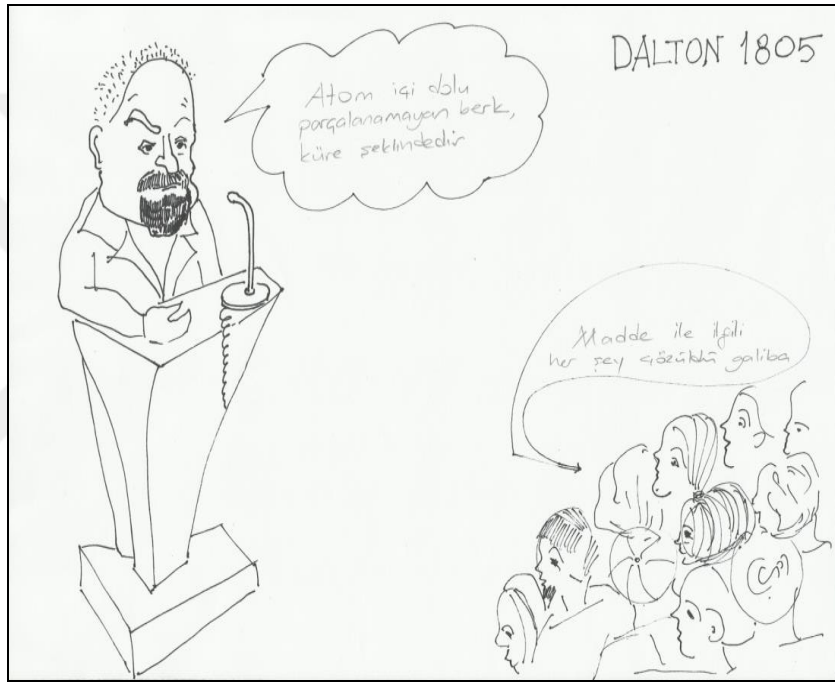 DALTON 1805
Atom içi dolu
parçalanamayan berk,
küre şeklindedir
Madde ile ilgili
her şey çözüldü galiba